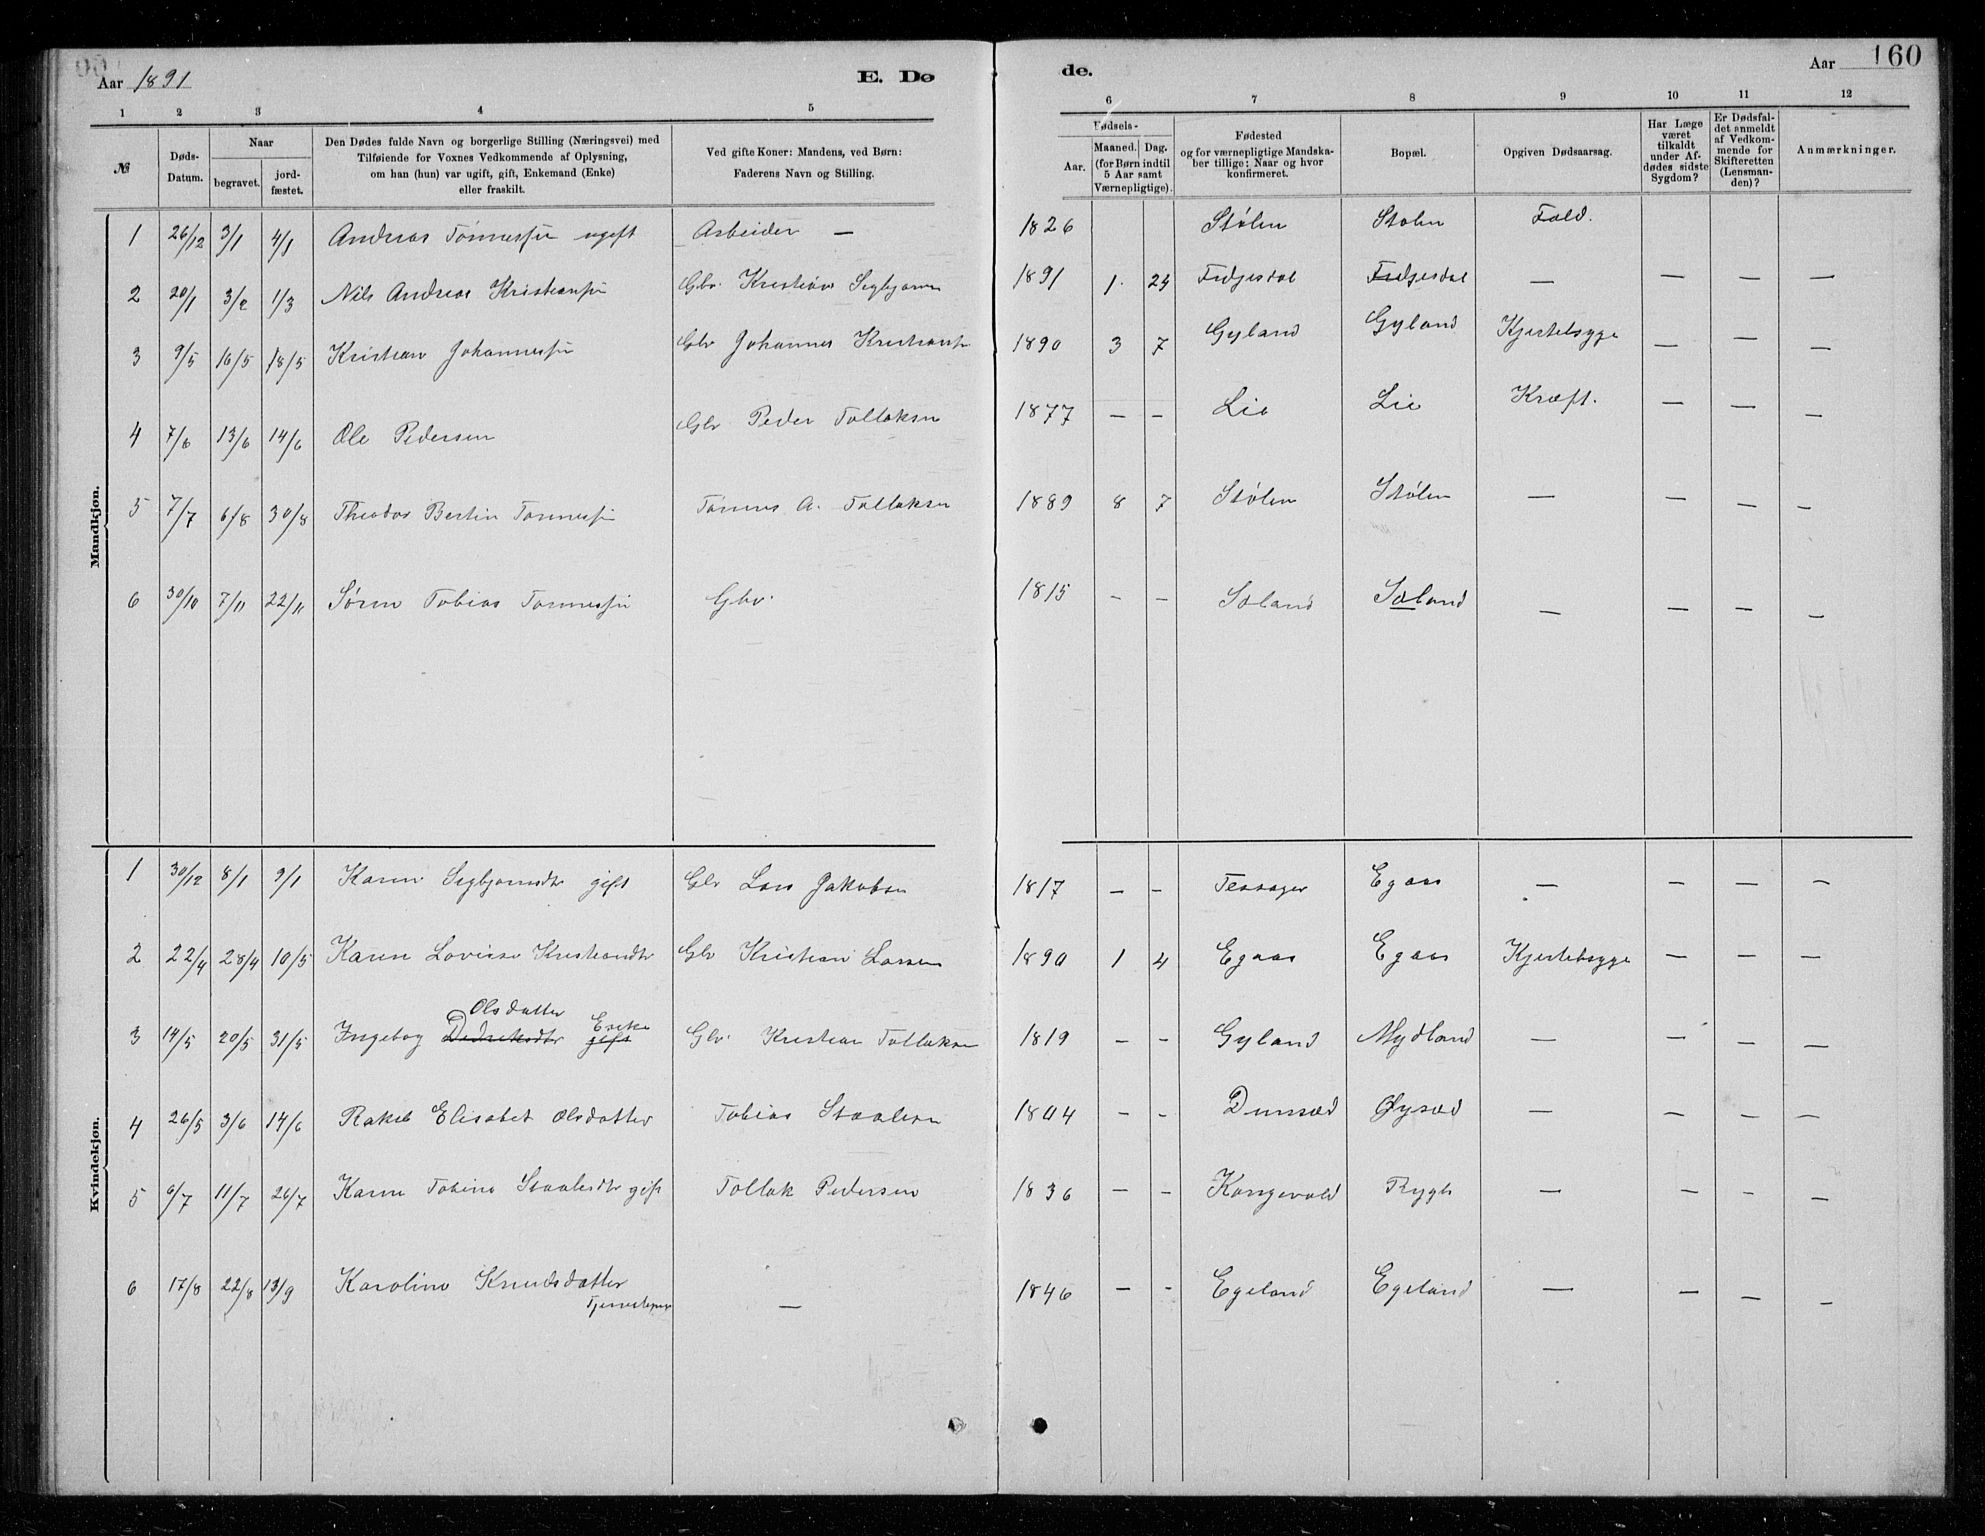 Aar 1891
E. Dø
de.
Aar
160
1 2 3 4 5
6 7 8 9 10 11 12
№
Døds-Datum.
Naar
begravet.
jord-fæstet.
Den Dødes fulde Navn og borgerlige Stilling (Næringsvei) med
Tilføiende for Voxnes Vedkommende af Oplysning,
om han (hun) var ugift, gift, Enkemand (Enke)
eller fraskilt.
Ved gifte Koner: Mandens, ved Børn:
Faderens Navn og Stilling.
Fødsels-
Aar.
Maaned. Dag.
(for Børn indtil
5 Aar samt
Værnepligtige).
Fødested
og for værnepligtige Mandska-
ber tillige: Naar og hvor
konfirmeret.
Bopæl.
Opgiven Dødsaarsag.
Har Læge
været
tilkaldt
under Af-
dødes sidste
Sygdom?
Er Dødsfal-
det anmeldt
af Vedkom-
mende for
Skifteretten
(Lensman-
den)?
Anmærkninger.
Mandkjøn.
1 26/12 3/1 4/1 Andreas Tønnessen ugift Arbeider — 1826 Stølen Stølen Fald.
2 20/1 3/2 1/3 Nils Andreas Kristiansen Gbr. Kristian Sigbjørnsen 1891 1. Fidjesdal Fidjesdal — — — —
3 9/5 16/5 18/5 Kristian Johannessen Gbr Johannes Kristiansen 1890 3 7 Gyland Gyland Kjertelsyge — — —
4 7/6 13/6 14/6 Ole Pedersen Gbr Peder Tollaksen 1877 — — Lie Lie Kræft. — — —
5 7/7 6/8 30/8 Theodor Bertin Tønnessen Tønnes A. Tollaksen 1889 8 7 Stølen Stølen — — — —
6 30/10 7/11 22/11 Søren Tobias Tønnessen Gbr. 1815 — — Sæland Sæland — — — —
Kvindekjøn.
1 30/12 8/1 9/1 Karen Sigbjørnsdtr gift Gbr Lars Jakobsen 1817 — — Tessager Egaas — — — —
2 22/4 28/4 10/5 Karen Lovisse Kristiansdtr Gbr Kristian Larsen 1890 1 4 Egaas Egaas Kjertelsyge — — —
Olsdatter Enke
3 14/5 20/5 31/5 Ingebog Didriksdtr gift Gbr. Kristian Tollaksen 1819 — — Gyland Mydland — — — —
4 26/5 3/6 14/6 Rakel Elisabet Olsdatter Tobias Staalesen 1804 — — Dunsæd Øysæd — — — —
5 6/7 11/7 26/7 Karen Tobine Staalesdtr gift Tollak Pedersen 1836 — — Kongevold Rygh — — — —
6 17/8 22/8 13/9 Karoline Knudsdatter — 1846 — — Egeland Egeland — — — —
Tjenestepige